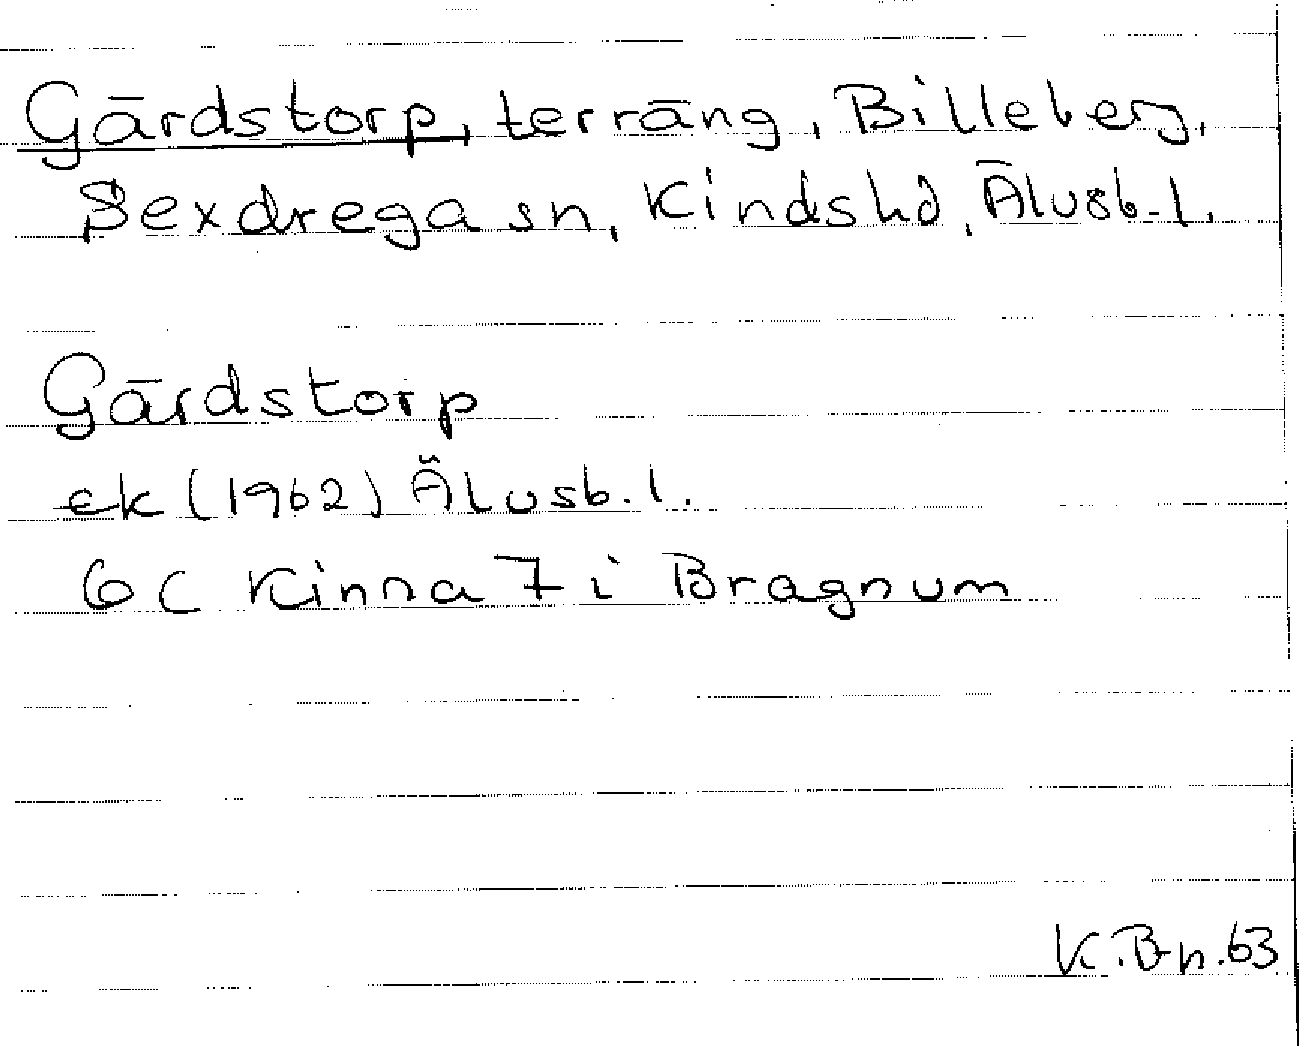 Gärdstorp, terräng, Billeberg,
Sexdrega sn, Kinds hd, Älvsb.l.
Gärdstorp
ek (1962) Älvsb.l.
6C Kinna 7 i Bragnum
K.Bn.63